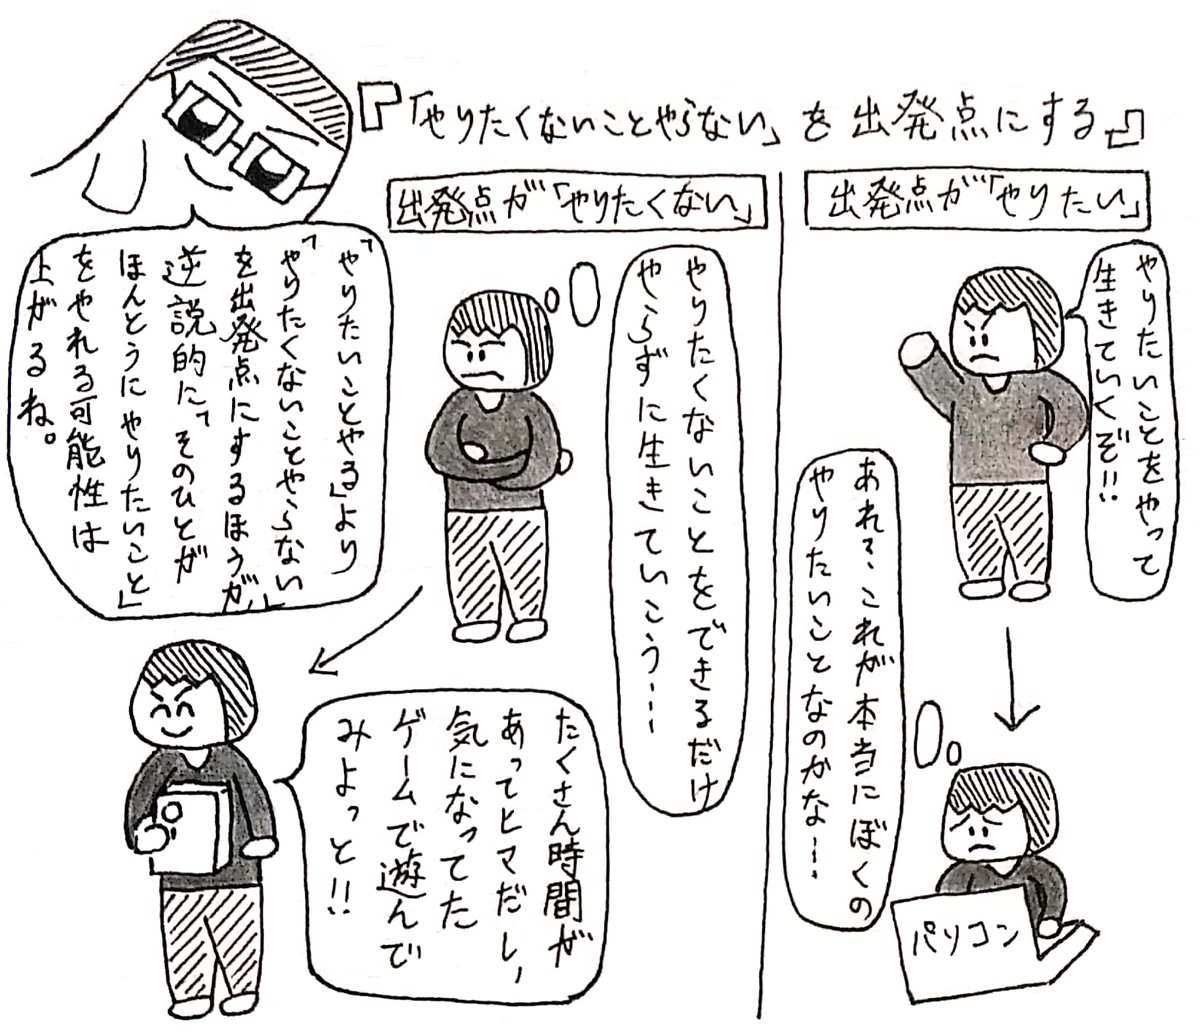 『「やりたくないことやらない」を出発点にする』
出発点が「やりたい」
やりたいことをやって
生きていくぞ!!
あれ?、これが本当にぼくの
やりたいことなのかな…
パソコン
出発点が「やりたくない」
やりたくないことをできるだけ
やらずに生きていこう…
たくさん時間が
あってヒマだし、
気になってた
ゲームで遊んで
みよっと!!
「やりたいことやる」より
「やりたくないことやらない」
を出発点にするほうが、
逆説的に「そのひとが
ほんとうにやりたいこと」
をやれる可能性は
上がるね。